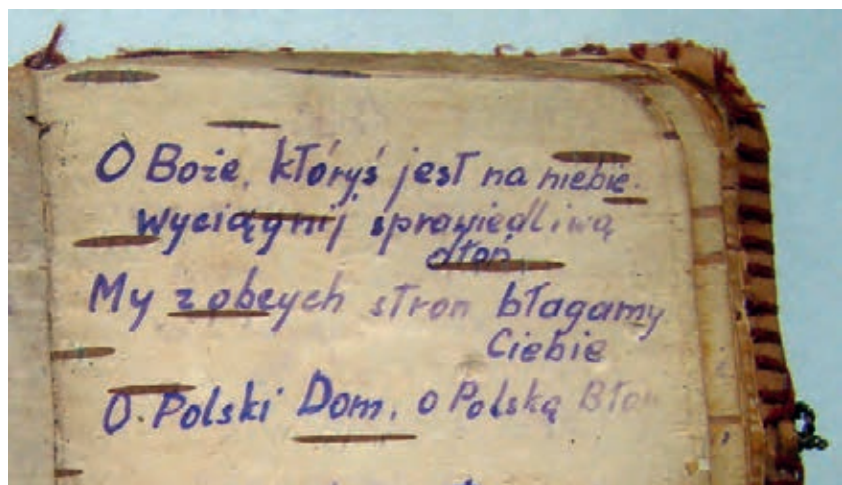 O Boże, któryś jest na niebie.
wyciągnij sprawiedliwą
dłoń
My z obcych stron błagamy
Ciebie
O. Polski Dom, o Polską